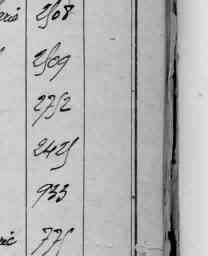 2508
2509
2752
2425
933
775